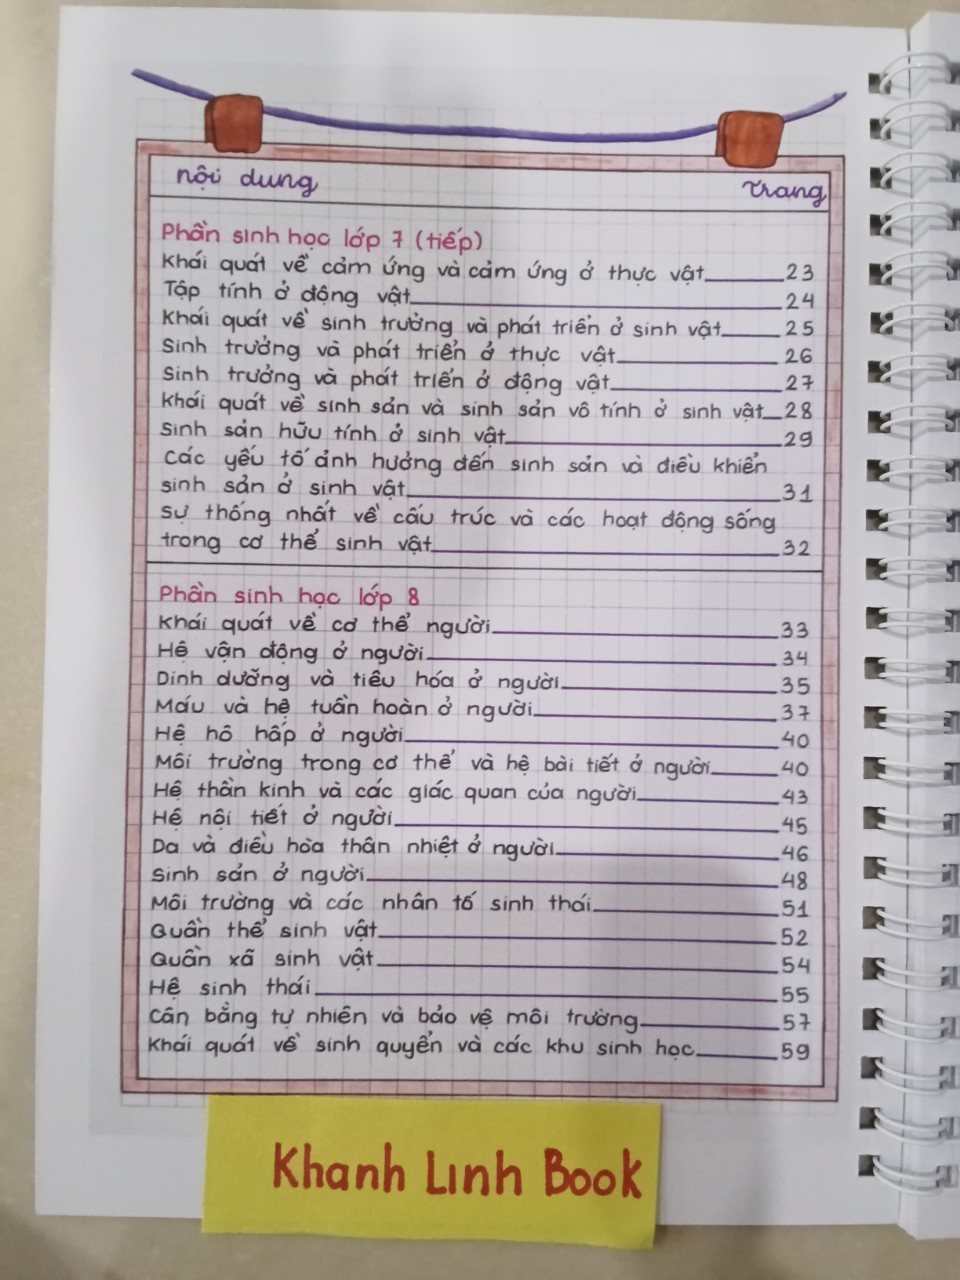 nội dung trang
Phần sinh học lớp 7 (tiếp)
Khái quát về cảm ứng và cảm ứng ở thực vật 23
Tập tính ở động vật 24
Khái quát về sinh trưởng và phát triển ở sinh vật 25
Sinh trưởng và phát triển ở thực vật 26
Sinh trưởng và phát triển ở động vật 27
Khái quát về sinh sản và sinh sản vô tính ở sinh vật 28
Sinh sản hữu tính ở sinh vật 29
Các yếu tố ảnh hưởng đến sinh sản và điều khiển
sinh sản ở sinh vật 31
Sự thống nhất về cấu trúc và các hoạt động sống
trong cơ thể sinh vật 32
Phần sinh học lớp 8
Khái quát về cơ thể người 33
Hệ vận động ở người 34
Dinh dưỡng và tiêu hóa ở người 35
Máu và hệ tuần hoàn ở người 37
Hệ hô hấp ở người 40
Môi trường trong cơ thể và hệ bài tiết ở người 40
Hệ thần kinh và các giác quan của người 43
Hệ nội tiết ở người 45
Da và điều hòa thân nhiệt ở người 46
Sinh sản ở người 48
Môi trường và các nhân tố sinh thái 51
Quần thể sinh vật 52
Quần xã sinh vật 54
Hệ sinh thái 55
Cân bằng tự nhiên và bảo vệ môi trường 57
Khái quát về sinh quyển và các khu sinh học 59
Khanh Linh Book